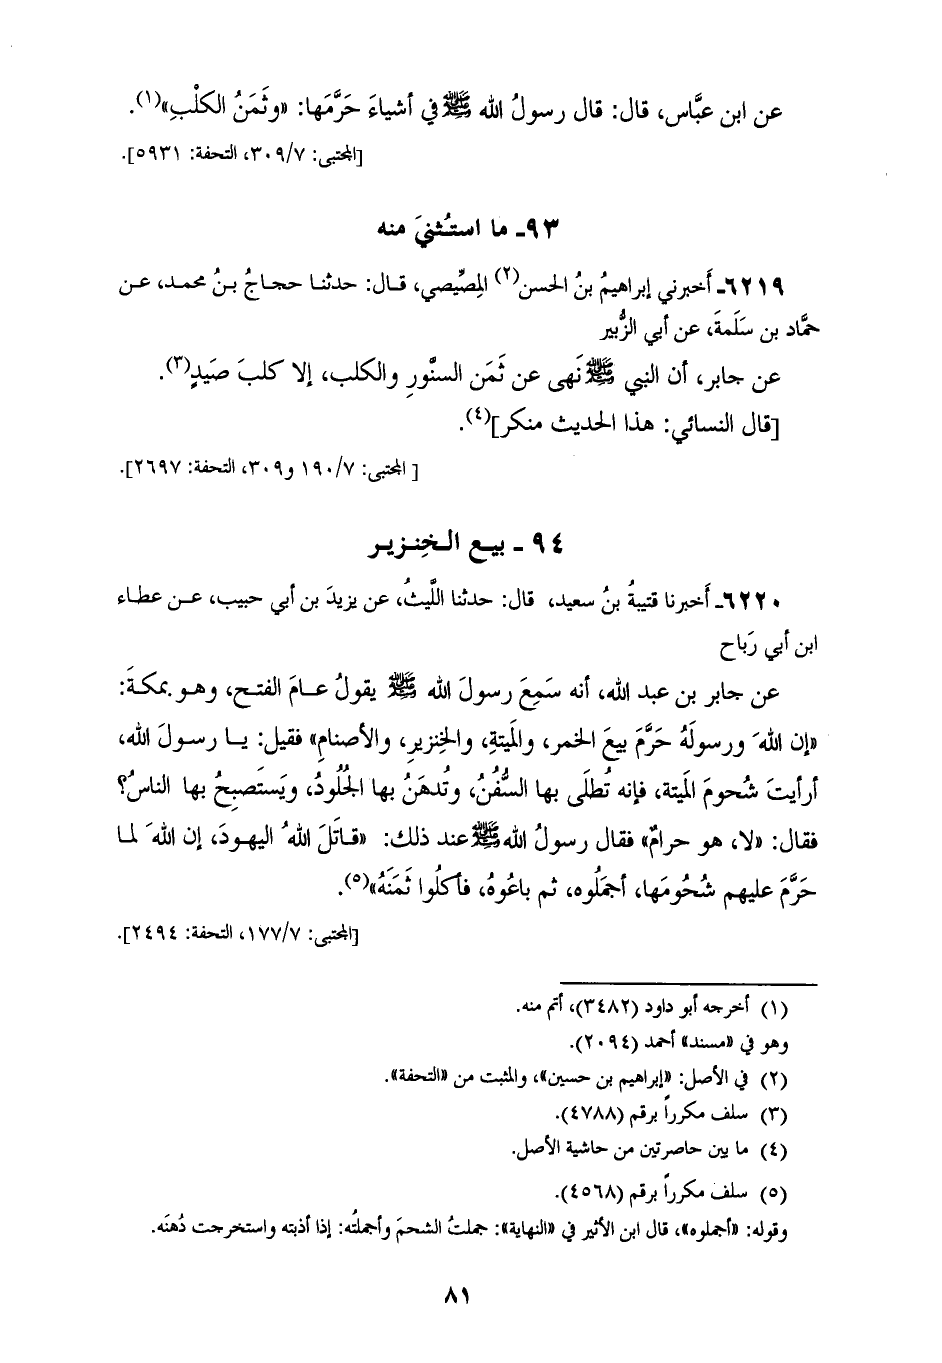 عن ابن عبَّاس، قال: قال رسولُ الله ﷺ في أشياءَ حَرَّمَها: «وثَمَنُ الكلْبِ»(١).
[المجتبى: ٣٠٩/٧، التحفة: ٥٩٣١].
٩٣ـ ما استُثنيَ منه
٦٢١٩ـ أَخبرني إبراهيمُ بنُ الحسن(٢) المِصِّيصي، قال: حدثنا حجاجُ بنُ محمد، عن
حمَّاد بن سَلَمةَ، عن أبي الزُّبير
عن جابر، أن النبي ﷺ نَهى عن ثَمَن السنَّورِ والكلب، إلا كلبَ صَيدٍ(٣).
[قال النسائي: هذا الحديث منكر](٤).
[ المجتبى: ١٩٠/٧ و٣٠٩، التحفة: ٢٦٩٧].
٩٤ ـ بيع الخِنزير
٦٢٢٠ـ أَخبرنا قتيبةُ بنُ سعيد، قال: حدثنا اللَّيثُ، عن يزيدَ بن أبي حبيب، عن عطاء
ابن أبي رَباح
عن جابر بن عبد الله، أنه سَمِعَ رسولَ الله ﷺ يقولُ عامَ الفتح، وهو بمكةَ:
«إن اللهَ ورسولَهُ حَرَّمَ بيعَ الخمر، والمَيتةِ، والخِنزيرِ، والأصنامِ» فقيل: يا رسولَ الله،
أرأيتَ شُحومَ المَيتة، فإنه تُطلَى بها السُّفُنُ، وتُدهَنُ بها الجُلُودُ، ويَستَصبِحُ بها الناسُ؟
فقال: «لا، هو حرامٌ» فقال رسولُ الله ﷺ عند ذلك: «قاتَلَ اللهُ اليهودَ، إن اللهَ لما
حَرَّمَ عليهم شُحُومَها، أجمَلُوه، ثم باعُوهُ، فأكلُوا ثَمَنَهُ»(٥).
[المجتبى: ١٧٧/٧، التحفة: ٢٤٩٤].
(١) أخرجه أبو داود (٣٤٨٢)، أتم منه.
وهو في «مسند» أحمد (٢٠٩٤).
(٢) في الأصل: «إبراهيم بن حسين»، والمثبت من «التحفة».
(٣) سلف مكرراً برقم (٤٧٨٨).
(٤) ما بين حاصرتين من حاشية الأصل.
(٥) سلف مكرراً برقم (٤٥٦٨).
وقوله: «أجملوه»، قال ابن الأثير في «النهاية»: جملتُ الشحمَ وأجملتُه: إذا أذبته واستخرجت دُهنَه.
٨١